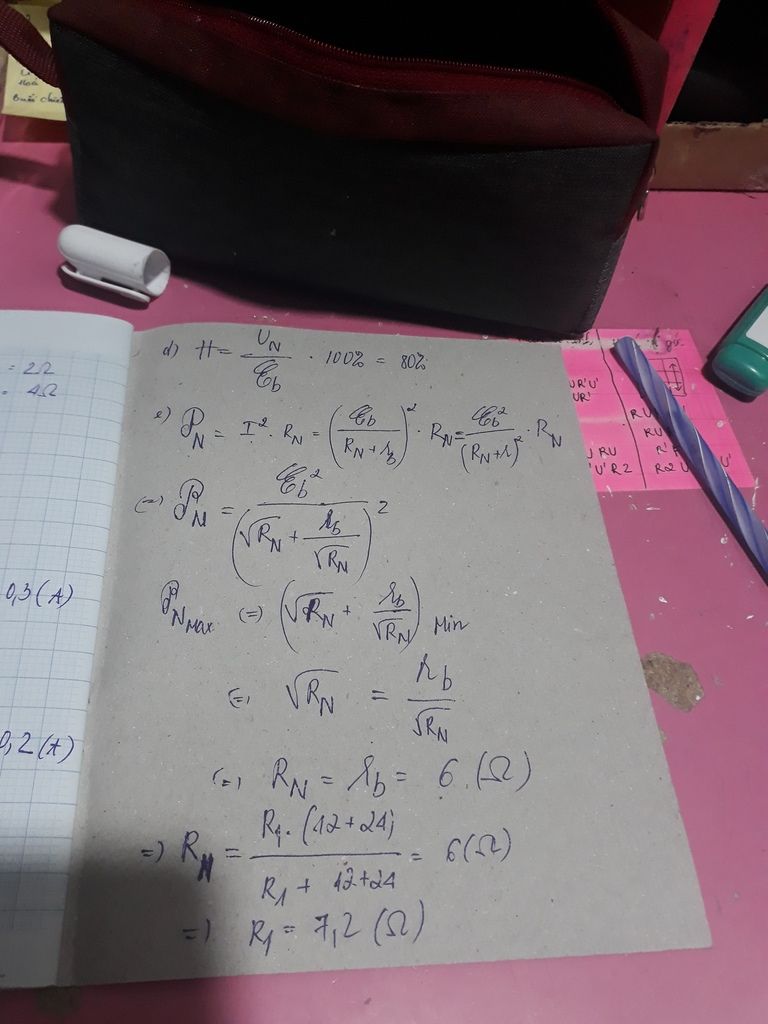 Buổi chiều
= 2Ω
= 4Ω
0,3 (A)
0,2 (A)
d) H = U_N / ℰ_b · 100% = 80%
e) 𝒫_N = I² · R_N = (ℰ_b / (R_N + r_b))² · R_N = ℰ_b² / (R_N + r)² · R_N
(=) 𝒫_N = ℰ_b² / (√R_N + r_b / √R_N)²
𝒫_N Max (=) (√R_N + r_b / √R_N) Min
(=) √R_N = r_b / √R_N
(=) R_N = r_b = 6 (Ω)
=) R_N = R_1 · (12+24) / (R_1 + 12+24) = 6 (Ω)
=) R_1 = 7,2 (Ω)
UR'U'
UR'
U RU
'U' R2
R U
RU
R'
R2 U
U'